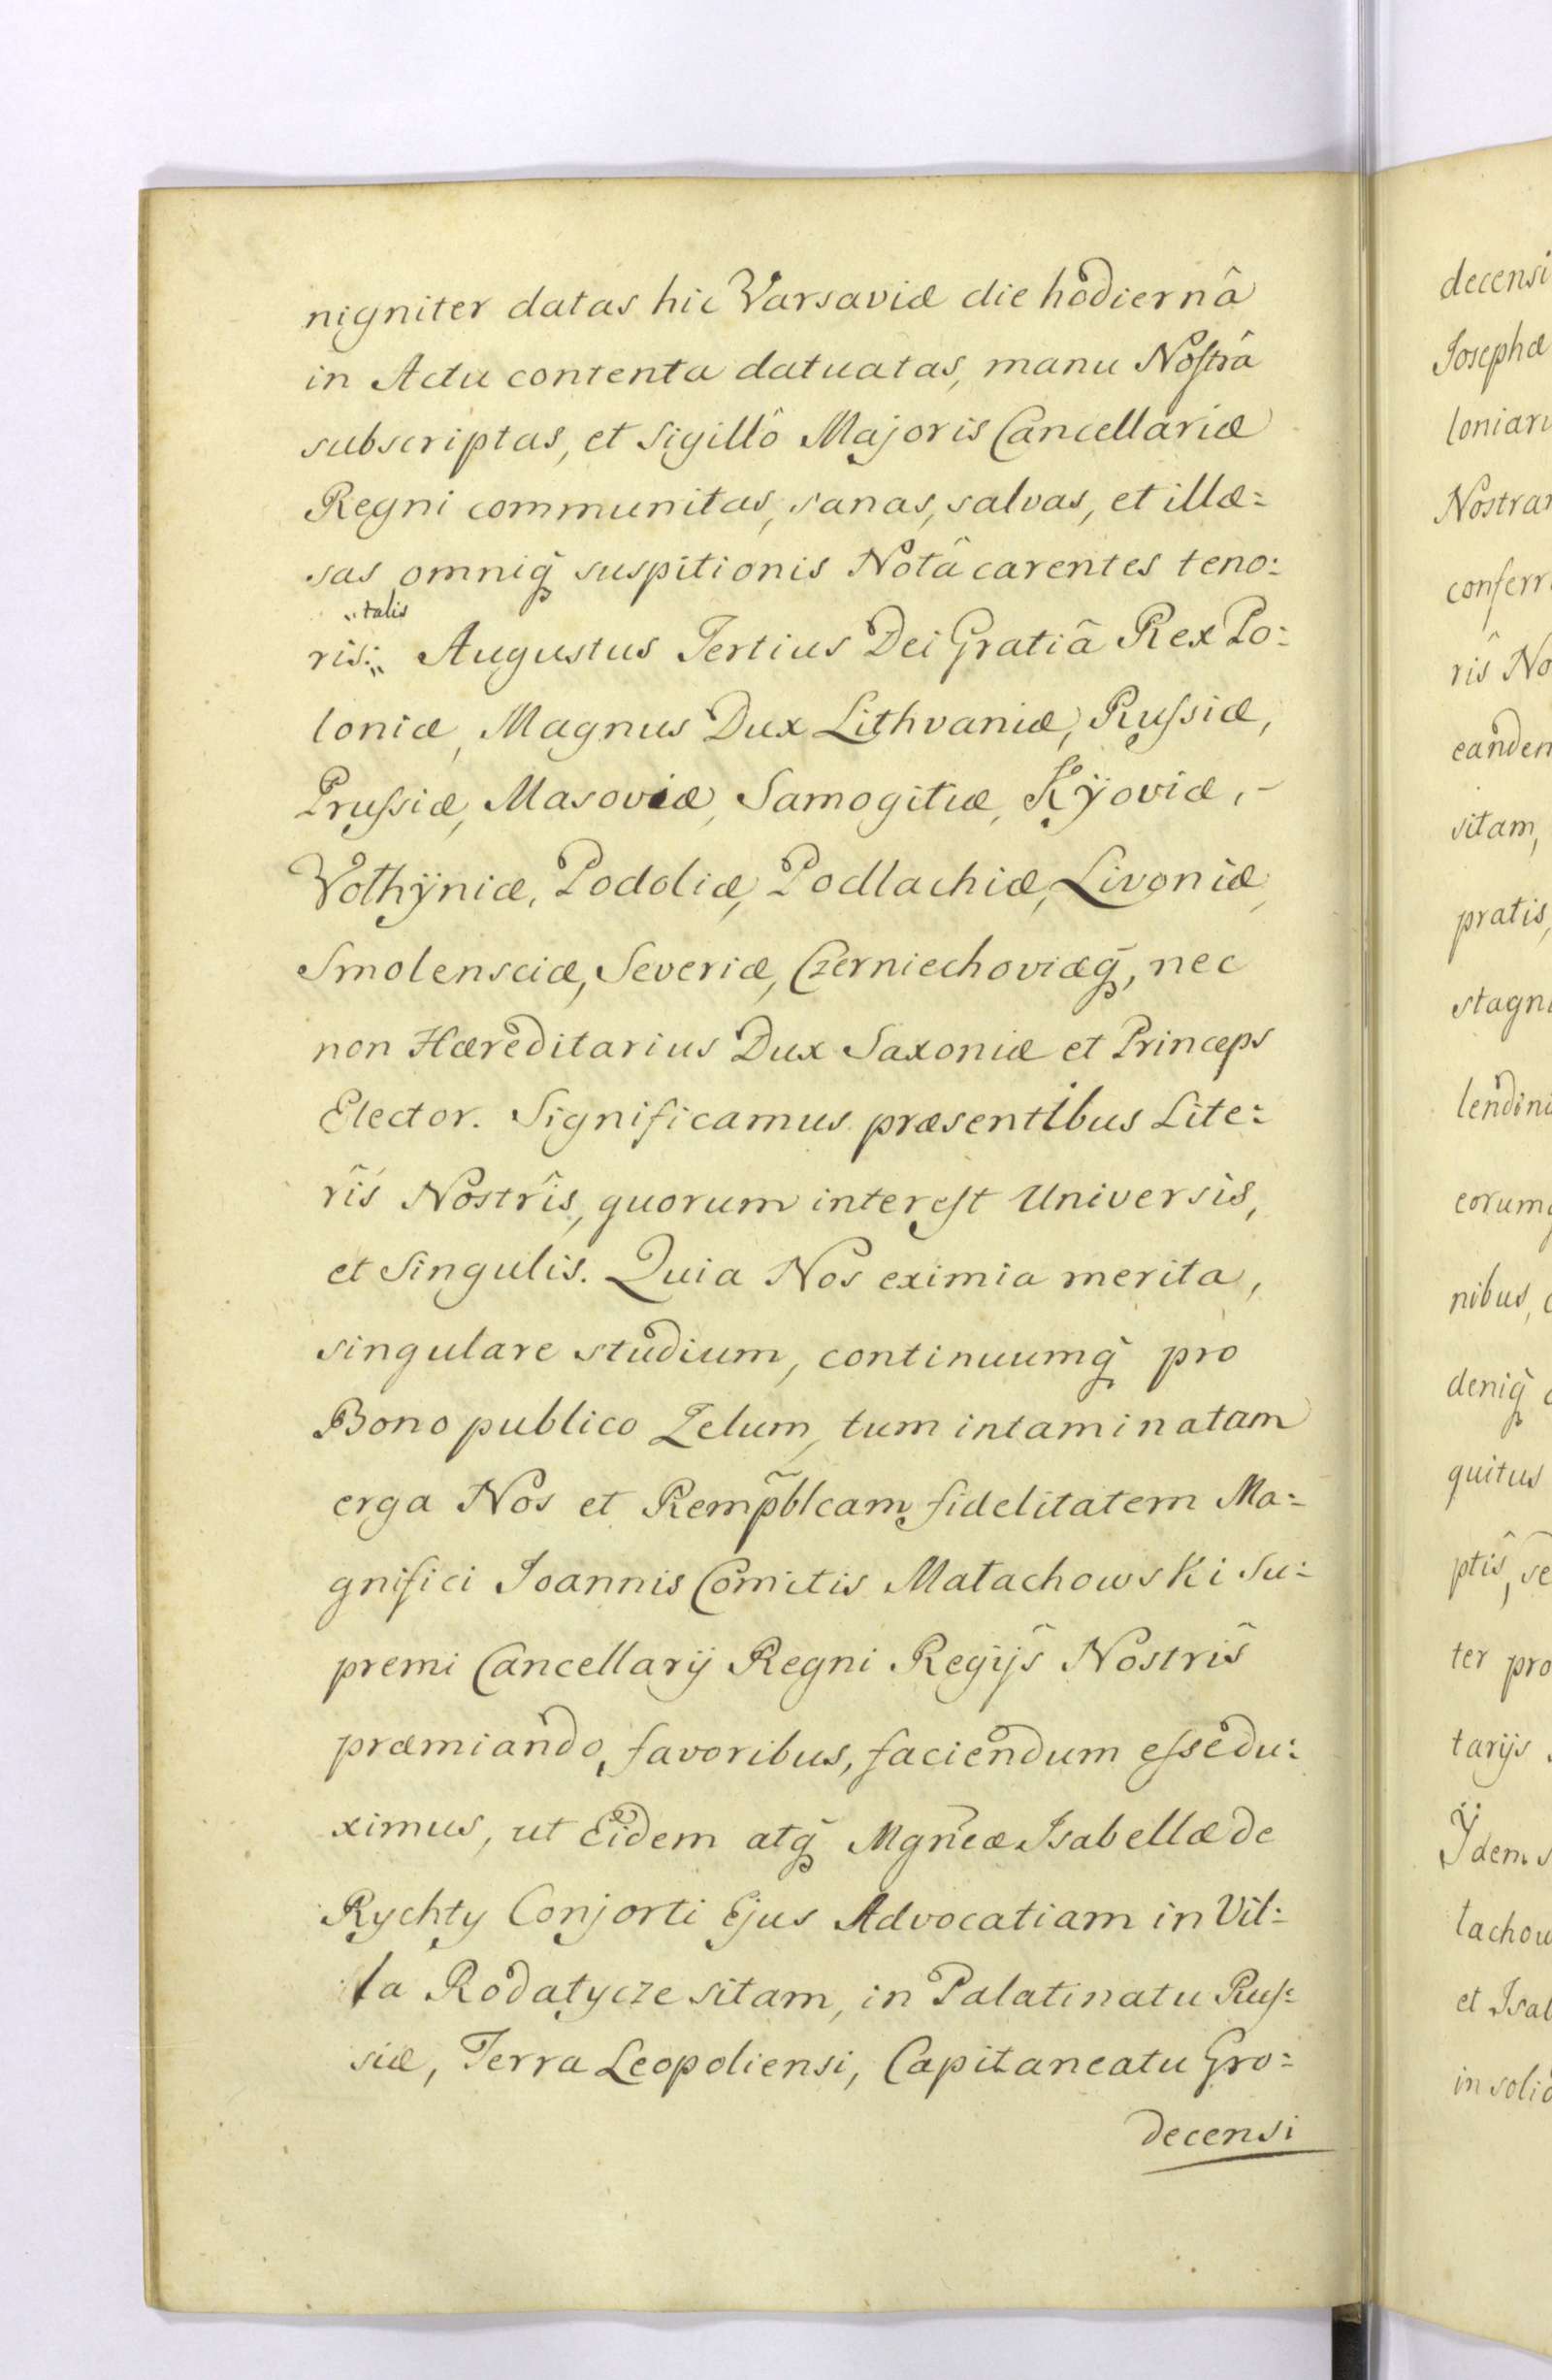 nigniter datas hic Varsaviæ die hodiernâ
in Actu contenta datuatas, manu Noſtrâ
subscriptas, et Sigillô Majoris Cancellariæ
Regni communitas, sanas, salvas, et illæ:
sas omniq̃ suspitionis Notâ carentes teno:
talis
ris: Augustus Tertius Dei Gratiâ Rex Po:
loniæ, Magnus Dux Lithvaniæ, Ruſsiæ,
Pruſsiæ, Masoviæ, Samogitiæ, Kÿoviæ, -
Vołhÿniæ, Podoliæ, Podlachiæ, Livoniæ,
Smolensciæ, Severiæ, Czerniechoviæq̃, nec
non Hæreditarius Dux Saxoniæ et Princeps
Elector. Significamus præsentibus Lite:
rîs Nostrîs, quorum intereſt Universis,
et Singulis. Quia Nos eximia merita,
singulare studium, continuumq̃ pro
Bono publico Zelum, tum intaminatam
erga Nos et Remp̃blcam fidelitatem Ma:
gnifici Joannis Comitis Małachowski Su:
premi Cancellarij Regni Regijs̑ Nostrîs
præmiando, favoribus, faciendum eſse du:
ximus, ut Eidem atq̃ Mgñeæ Isabellæ de
Rychty Conjorti Ejus Advocatiam in Vil:
la Rodatycze sitam, in Palatinatu Ruſ:
siæ, Terra Leopoliensi, Capitaneatu Gro:
decensi
decensi
Josephæ
loniaru
Nostra
conferr
rîs No
eandem
sitam,
pratis,
stagni
lendini
eorumq
nibus,
deniq̃
quitus
ptîs, se
ter pro
tarijs
Ÿdem
łachow
et Isab
in solid